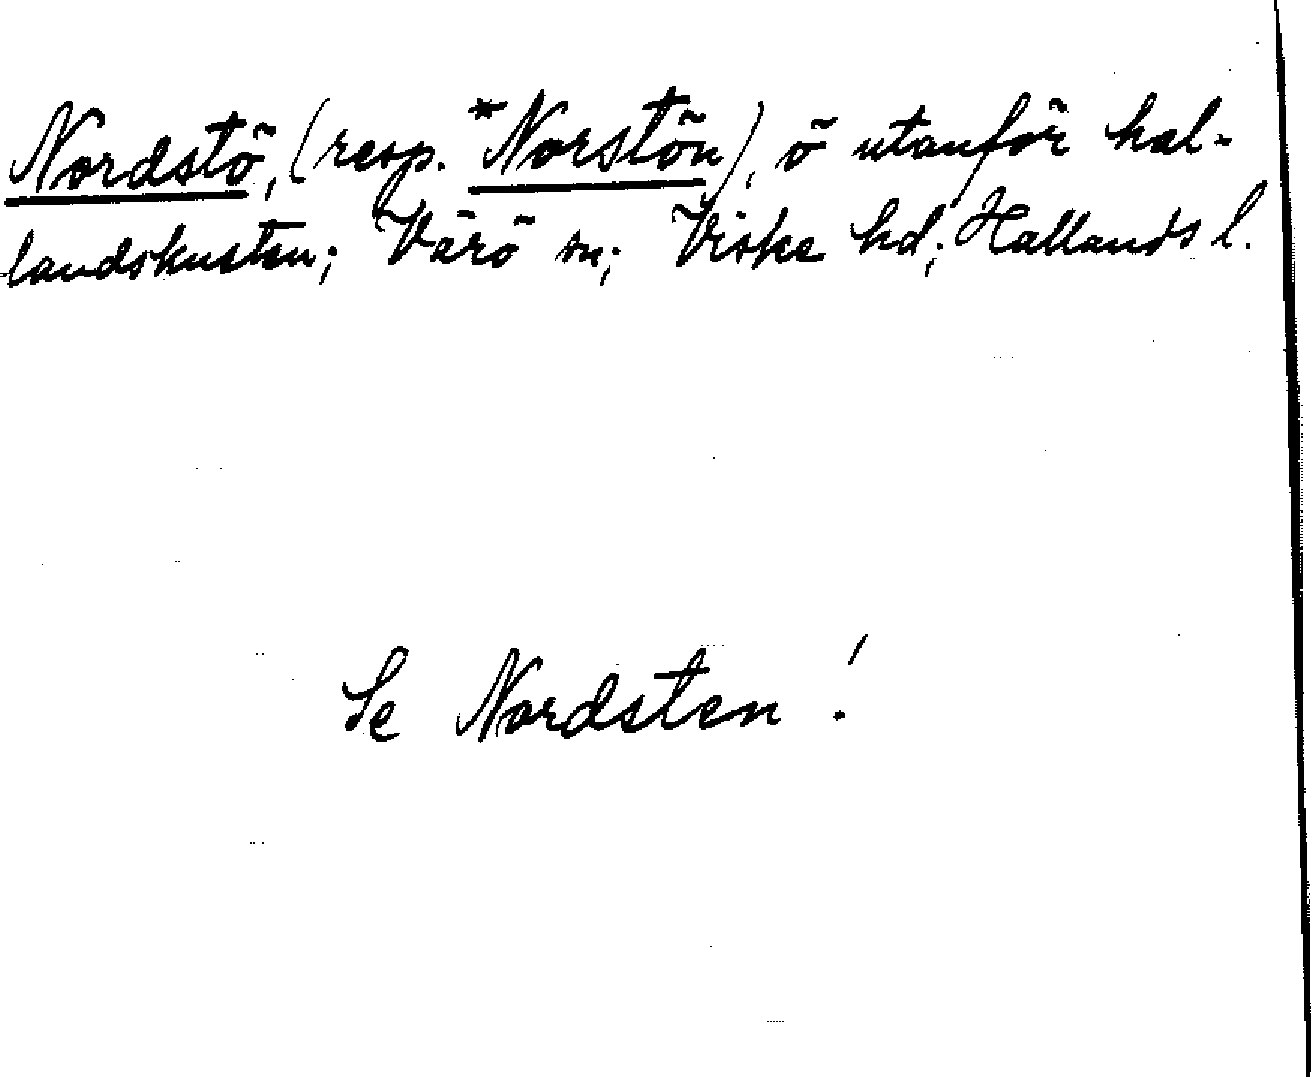 Nordstö, (resp. *Norstön), ö utanför hal-
landskusten; Värö sn; Viske hd; Hallands l.
Se Nordsten!